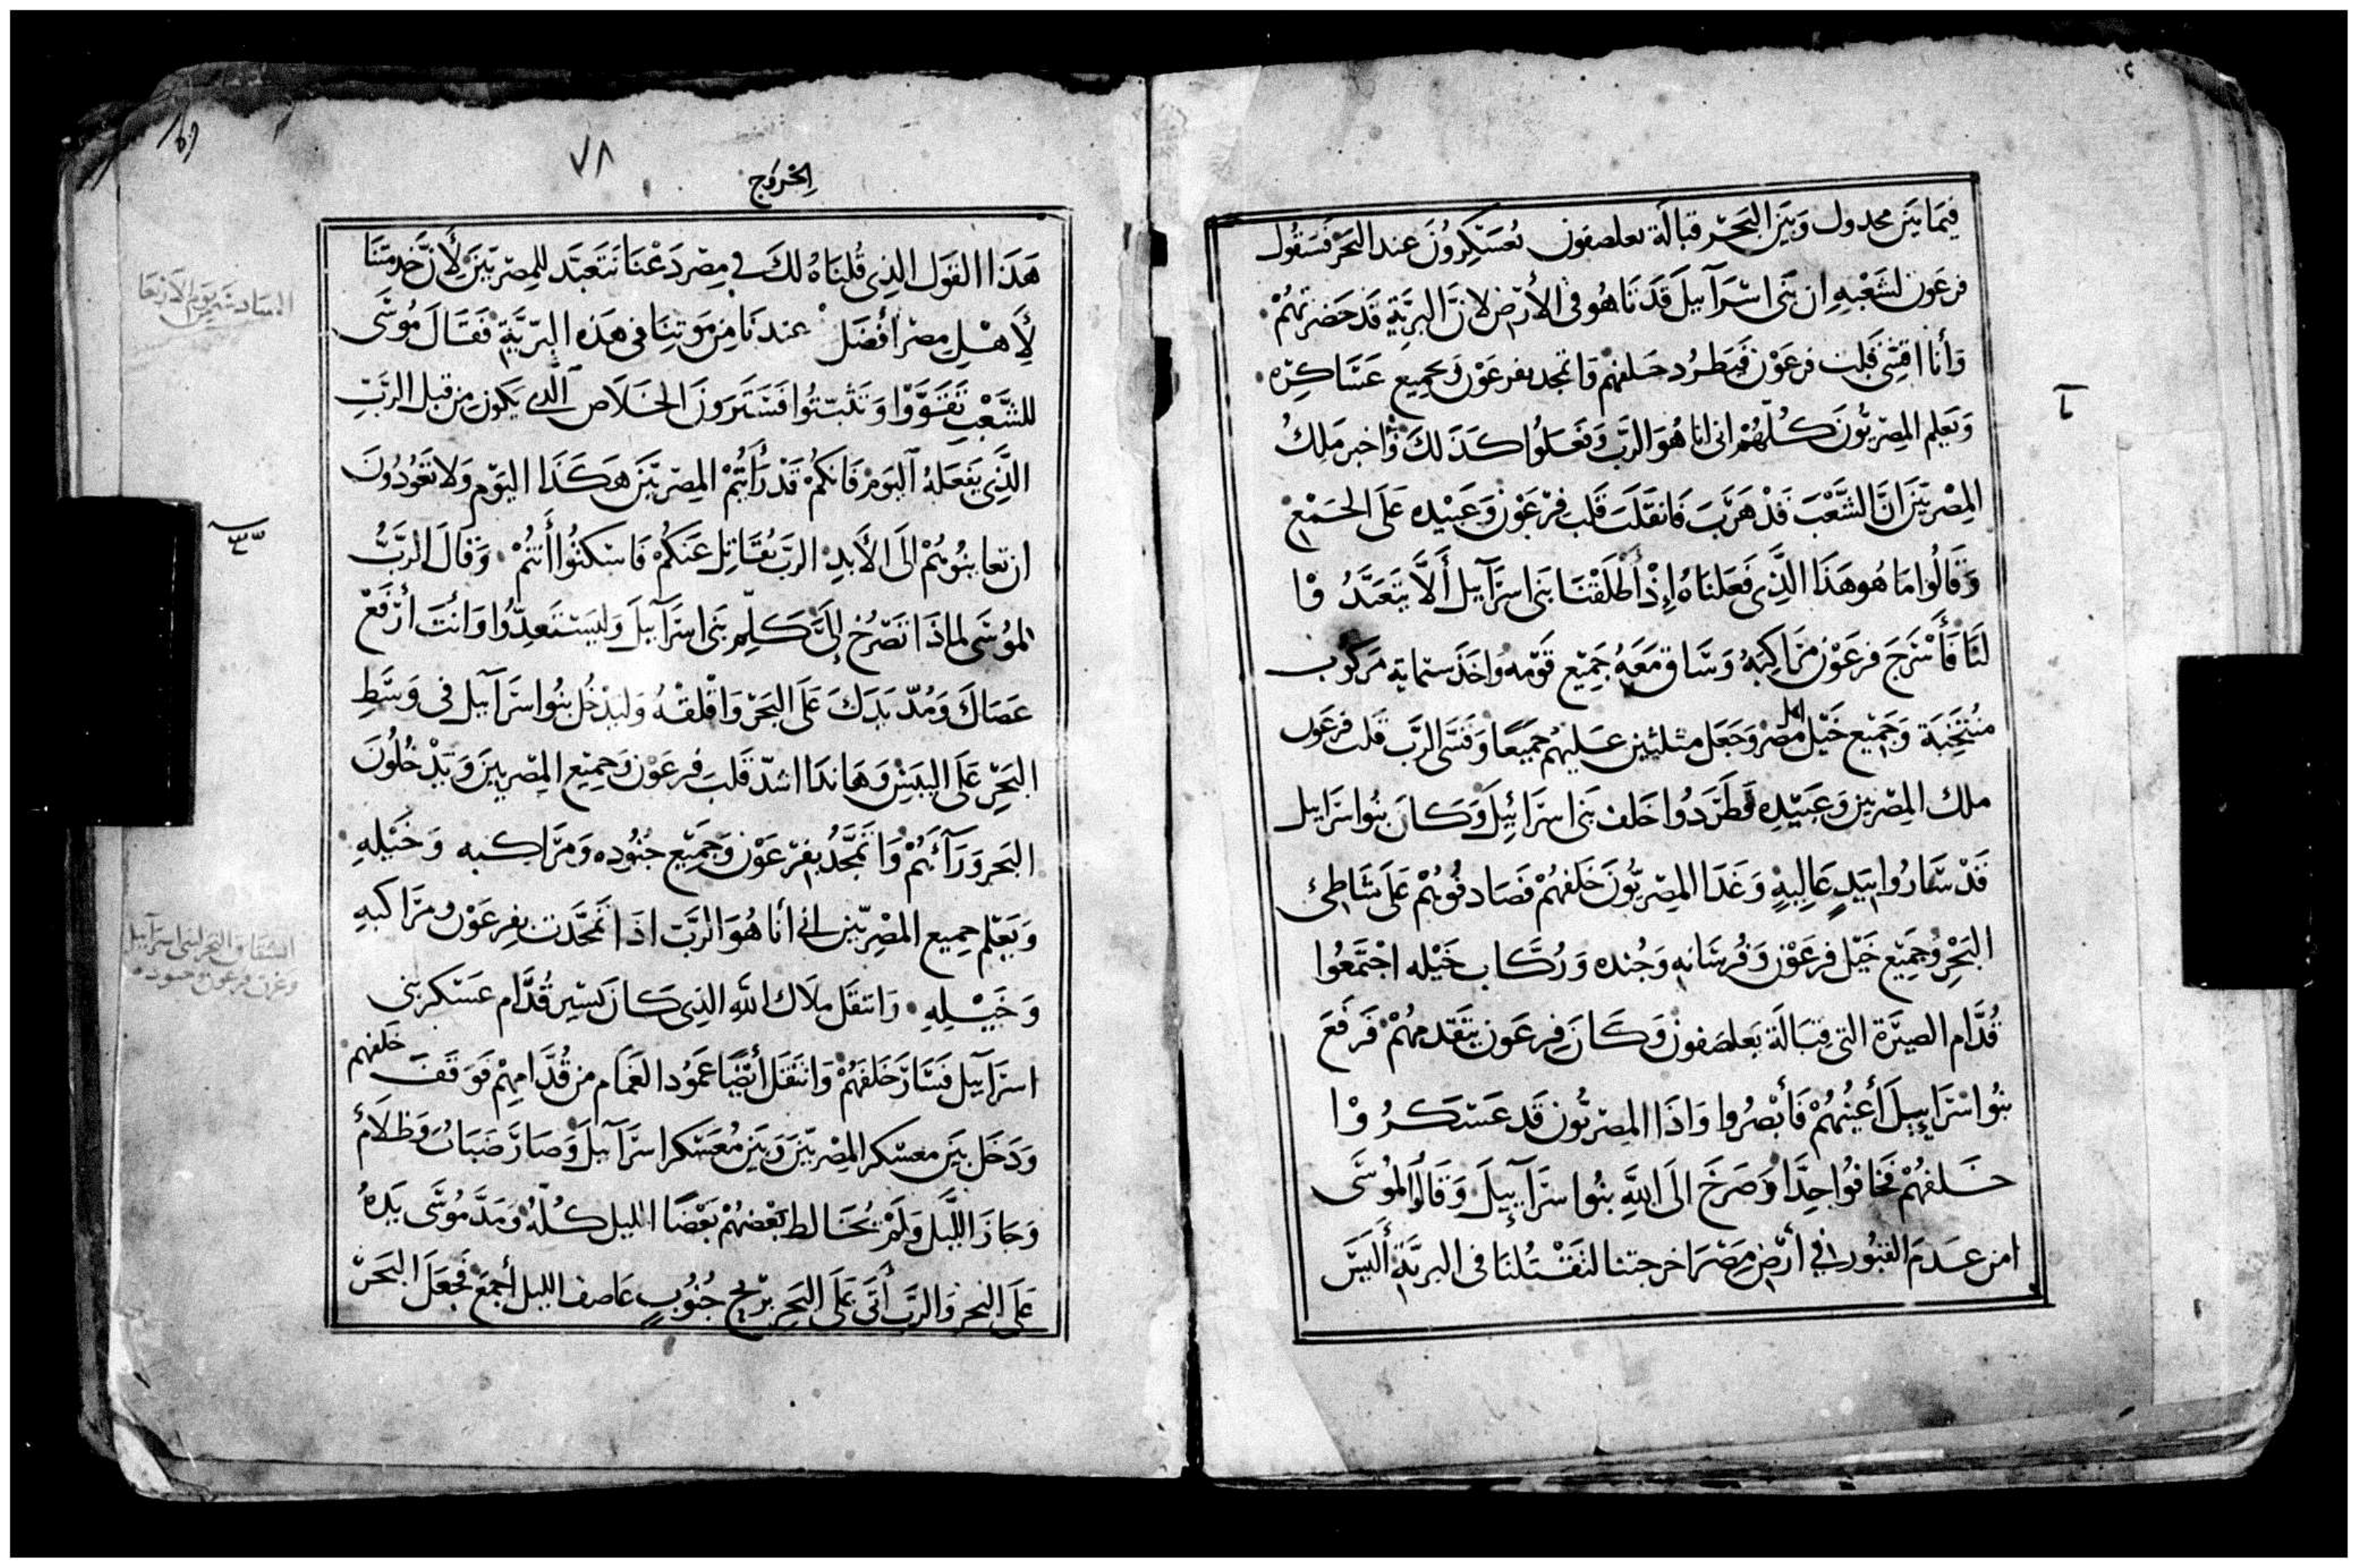 فيمَا بَين مجدول وَبَين البَحَر قبَالَة بعلصفون يُعَسَكِرُونَ عند البَحَر فسَتقُول
فرعَون لشَعْبِهِ ان بَنى اسْرَآييلَ قَدَ تَاهُو فى الأرْض لانَّ البريَّةِ قَد حَضرتهُمْ
وَأَنا اقسّى قَلب فرعَوْن فيَطرُد خَلفهم وَاتمجد بفرعَوْن وَبجميع عَسَاكِرَه
وَيَعلم المِصْريُّونَ كُلّهُمْ انى انا هُوَ الرَب وَفعَلوُا كذَلكَ وَاخبر مَلِكُ
المِصْريّينَ انَّ الشَّعْبَ قَدْ هَرَبَ فَانقَلَبَ قَلب فرْعَوْن وَعَبيْده عَلَى الجَمْع
وَقَالُوا مَا هُو هَذَا الَّذِى فَعَلنَاهُ إذْ أَطْلَقْنَا بَنى اسرَآييل أَلاَّ يَتَعَبَّدُ وْا
لنَا فَأسْرَجَ فرعَوْن مَرَاكِبَهُ وَسَاق مَعَهُ جَمِيْع قَوْمه وَاخَذَ ستماية مَركوُب
مُنتَخِبَة وَجَمِيْع خَيْل اهل مصْر وَجَعَل مثلثين عَليهُم جَمِيعًا وَقسَّى الرَّب قَلب فرعَون
ملك المِصْريين وَعَبيْدِه فَطَرَدُوا خَلف بَنى اسرَائِيْلَ وَكَانَ بنُوا اسرَاييل
قَدْ سَارُوا بيَدٍ عَاليةٍ وَغَدَا المِصْريُّونَ خَلفهُمْ فصَادفُوهُمْ عَلَى شَاطِئ
البَحْر وَجَمِيْع خَيْل فرعَوْن وَفُرسَانه وَجُنده وَرُكَّاب خَيْله اجْتَمَعُوا
قُدَّام الصيَرَة التى قبَالَة بَعلصَفون وَكَانَ فِرعَون يتَقدمهُمْ فَرفَعَ
بنُوا اسْرَاييلَ أعينُهُمْ فَأبْصَرُوا وَاذَا المِصْريُّون قَد عَسْكَرُ وْا
خَلفهُمْ فخَافُوا جِدًّا وَصَرَخَ الَى اللهِ بنُوا اسرَآييلَ وَقَالُوا لمُوسَى
امن عَدَم القبُور في أرْض مِصْرَ اخرجتنا لتَقْتُلنَا فى البريَّةِ أَليَسَ
٧٨
الخرُوج
هَذَا القوَل الذِى قُلنَاهُ لكَ فى مِصْر دَعْنَا نَتَعَبَّد للمِصْريّينَ لأَنَّ خَدمتنَا
لأَهْل مصْر أفْضَل عندَنَا مِن مَوتنِنَا فى هَذه البريَّةِ فَقَالَ مُوسَى
للشَّعْب تَقَوَّوُا وَتَثبتّوُا فسَتَرَونَ الخَلَاص الَّذى يَكون مِن قبَل الرَّبِّ
الَّذِى يَفعَلهُ اليَومْ فَانكمْ قَدْ رَأَيتُمْ المِصْريّينَ هَكذَا اليَوم وَلا تَعُودُونَ
ان تعاينُوهُمْ الَى الأبدِ الرَّبّ يُقَاتل عَنكمُ فَاسْكتُوا أَنتُمْ وَقالَ الرَّبُّ
لموُسَى لماذَا تَصْرُخ إلَىَّ كَلِّم بَنى اسرَآييلَ وَليَسْتَعدِّوُا وَانْتَ أرْفَعْ
عَصَاكَ وَمُدّ يَدَكَ عَلَى البَحَر وَافْلقْهُ وَليَدْخُل بنُوا اسرَآييل فى وَسَطِ
البَحَر عَلَى اليبَسْ وَهَا نذَا اشدّ قَلبَ فِرعَوْن وَجمِيْع المِصْريينَ وَيَدْخُلُونَ
البَحر وَرَآئهُمْ وَاتمَجَّدُ بفرْعَوْن وَجَمِيْع جنُوُده وَمَرَاكبه وَخَيْلهِ
وَيَعْلم جميع المِصْريّين انى أنا هُوَ الرَّب اذَا تمجَّدت بفِرعَوْن ومرَاكبهِ
وَخَيْلِهِ وَانتقَل مَلَاك اللهِ الذِى كَان يَسِير قُدَّام عَسْكر بنى
اسرَآييل فسَارَ خَلفهُمْ وَانتقَل أيْضًا عَموُد الغَمَام من قُدَّامِهِمْ فوَقَفَ خَلفهم
وَدَخَل بَينَ معسْكر المِصْريّينَ وَبَين مُعَسْكر اسرَآييلَ وَصَارَ ضَبَاب وَظَلَامٌ
وَجَازَ اللَّيل وَلمَ يُخَالط بَعْضهُمْ بَعْضًا الليل كُلّهُ وَمَدَّ مُوسَى يَدهُ
عَلَى البَحر وَالرَّب أَتَى عَلَى البَحَر بريْح جُنُوبٍ عَاصف الليل أجمَعَ فَجعَلَ البَحَرَ
السَادسَة من يوم الاربَعَا
انشقاق البَحر لبنى اسرَآييل
وغرق فرعون وجنوده